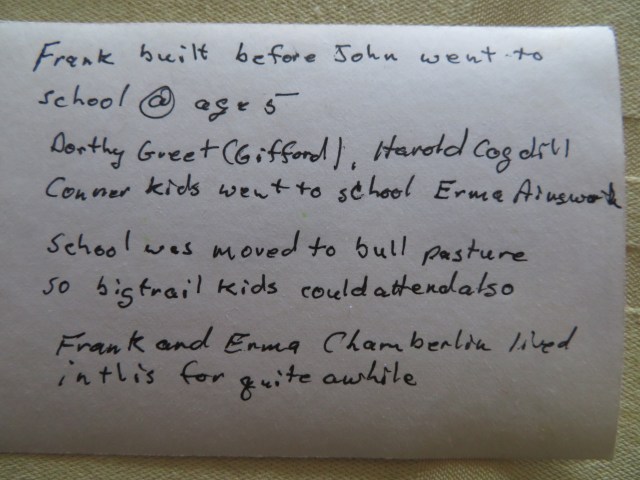 Frank built before John went to
school @ age 5
Dorthy Greet (Gifford), Harold Cogdill
Conner kids went to school Erma Ainswort
School was moved to bull pasture
so bigtrail kids could attend also
Frank and Erma Chamberlin lived
in this for quite awhile